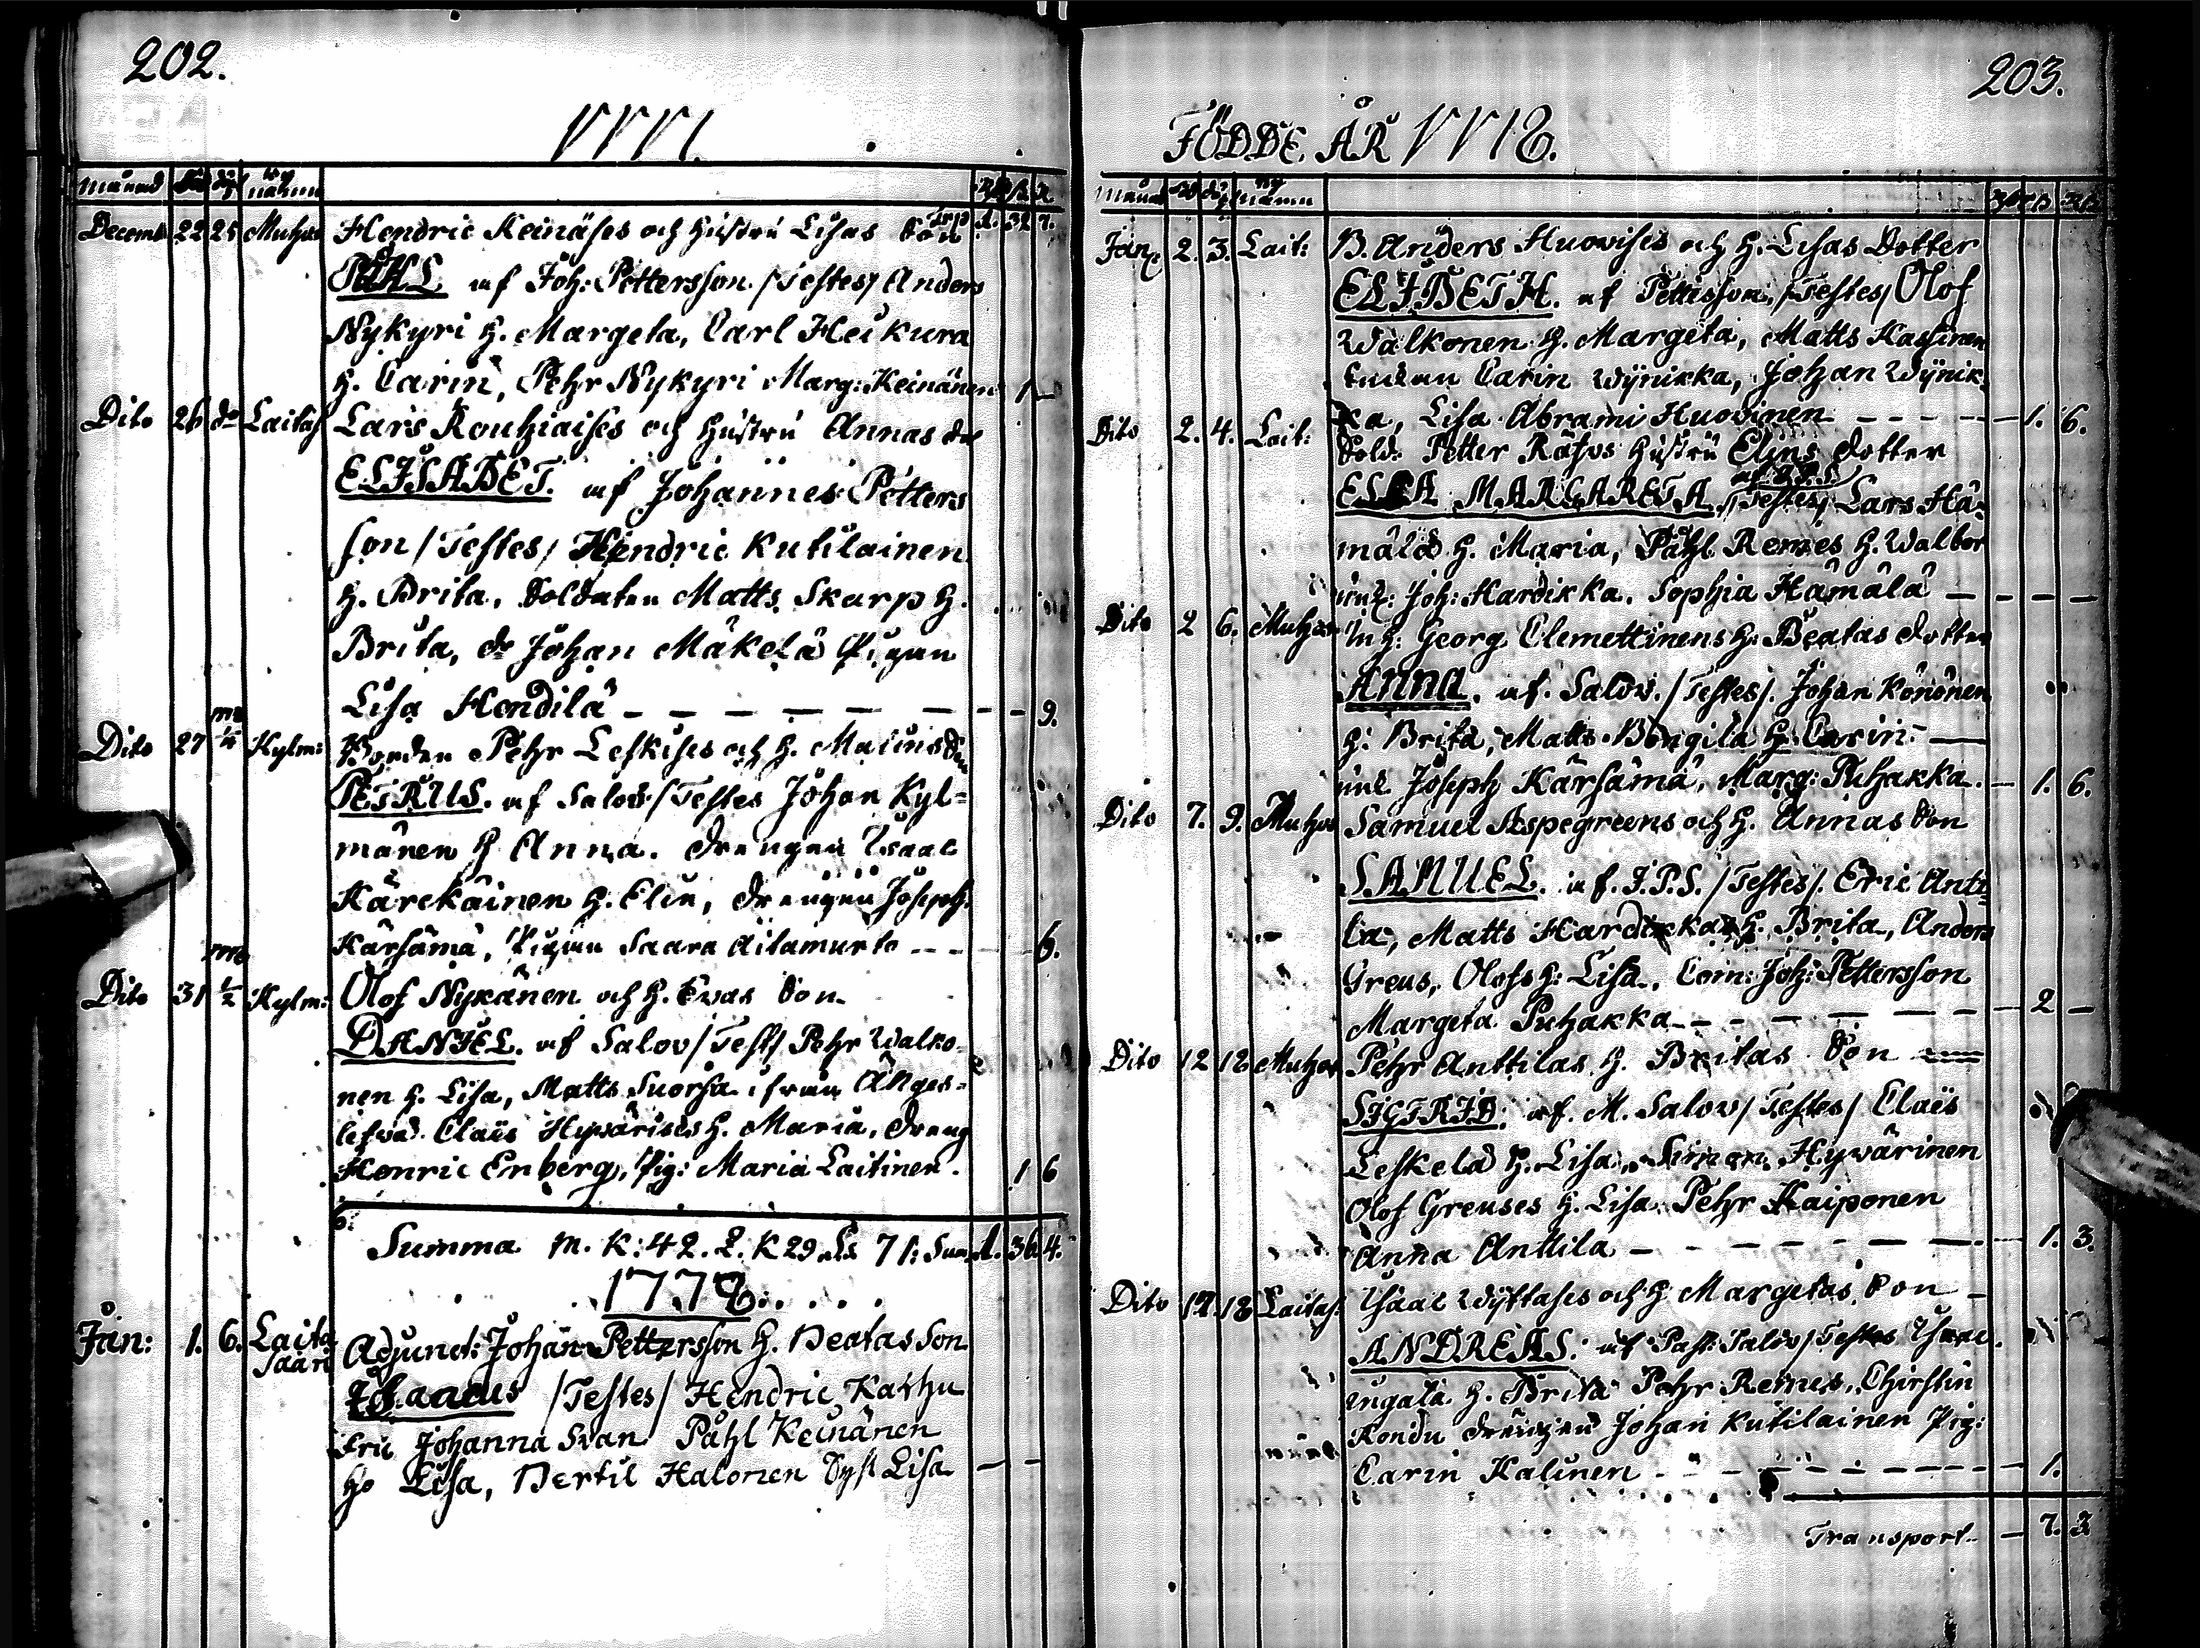 202.
1777.
Månad dn dp by nahmn
Decemb 22 25 Muhos Hendric Keinäses och Hustru Lisas Son Trsp d. 32 7.
PÅHL af Joh: Pettersson /Testes/ Anders
Nykyri H. Margeta, Carl Heikura
H. Carin, Pehr Nykyri Marg: Keinänen 1 –
Dito 26 do Laitas Lars Rouhiaises och Hustru Annas do
ELISABET. af Johannes Petters
son /Testes/ Hendric Kutilainen
H. Brita, Soldaten Matts Skarp H.
Brita, dr Johan Mäkelä Pigan
Lisa Hendilä – – – – – – – 9.
Dito 27 1/4 Kylm: Bonden Pehr Leskises och H. Malins Son
PETRUS. af Salov /Testes Johan Kyl=
mänen H Anna. drengen Isaac
Kärekäinen H. Elin, drengen Joseph
Kärsämä, Pigan Saara Äilamurto – – – 6.
Dito 31 1/2 Kylm: Olof Nykänen och H. Evas Son
DANIEL. af Salov /Test/ Pehr Walko-
nen H. Lisa, Matts Suorsa, ifrån Änges-
lefvä Claës Hyvärises H. Maria, dreng
Henric Enberg, Pig: Maria Laitinen. 1 6
Summa M. K: 42. Q. K 29 Ls 71: Sum d. 36 4.
1778.
Jan: 1. 6. Laita
saari Adjunct: Johan Pettersson H. Beatas Son
Johannes /Testes/ Hendric Karhu
Fru Johanna Svan Påhl Keinänen
Ho Lisa, Bertil Halonen Syst Lisa – –
203.
FÖDDE. ÅR 1778.
Månad dn dp by namn
Jan. 2. 3. Lait: B. Anders Huovises och H. Lisas Dotter
ELISBETH. af Pettersson, /Testes/ Olof
Walkonen H. Margeta, Matts Kastinen
Carin Wÿnikka, Johan Wÿnik
ka, Lisa Abrami Huovinen – – – – 1. 6.
Dito 2. 4. Lait: Sold: Petter Räfvs Hustru Elins dotter
af J.P.S.
ELSA MARGARETA /Testes/ Lars Hä-
mälä H. Maria, Påhl Remes H. Walbor
Joh: Hardikka. Sophia Hämälä – – – –
Dito 2 6. Muhos Georg Clemettinens H: Beatas dotter
ANNA. af. Salov. /Testes/. Johan Könönen
H: Brita, Matts Bongila H. Carin. –
Joseph Kärsämä, Marg: Puhakka. – 1. 6.
Dito 7. 9. Muhos Samuel Aspegreens och H. Annas Son
SAMUEL. af. J.P.S. /Testes/. Eric Antt
la, Matts Hardikka H. Brita, Anders
Greus, Olofs H: Lisa, Com: Joh: Pettersson
Margeta Puhakka – – – – – – 2 –
Dito 12 18 Muhos Pehr Anttilas H. Britas Son
SIGFRID: af. M. Salov /Testes/ Claës
Leskelä H. Lisa, Simon Hyvärinen
Olof Greuses H. Lisa. Pehr Kaiponen
Anna Anttila – – – – – – – 1. 3.
Dito 17. 18 Laitas: Isaac Wÿttases och H Margetas Son –
ANDREAS: af Past: Salov /Testes Isaac
H. Brita Pehr Remes, Chirstin
Kondu drengen Johan Kutilainen Pig:
Carin Kalinen – – – – – – – 1.
Transport – 7. 3